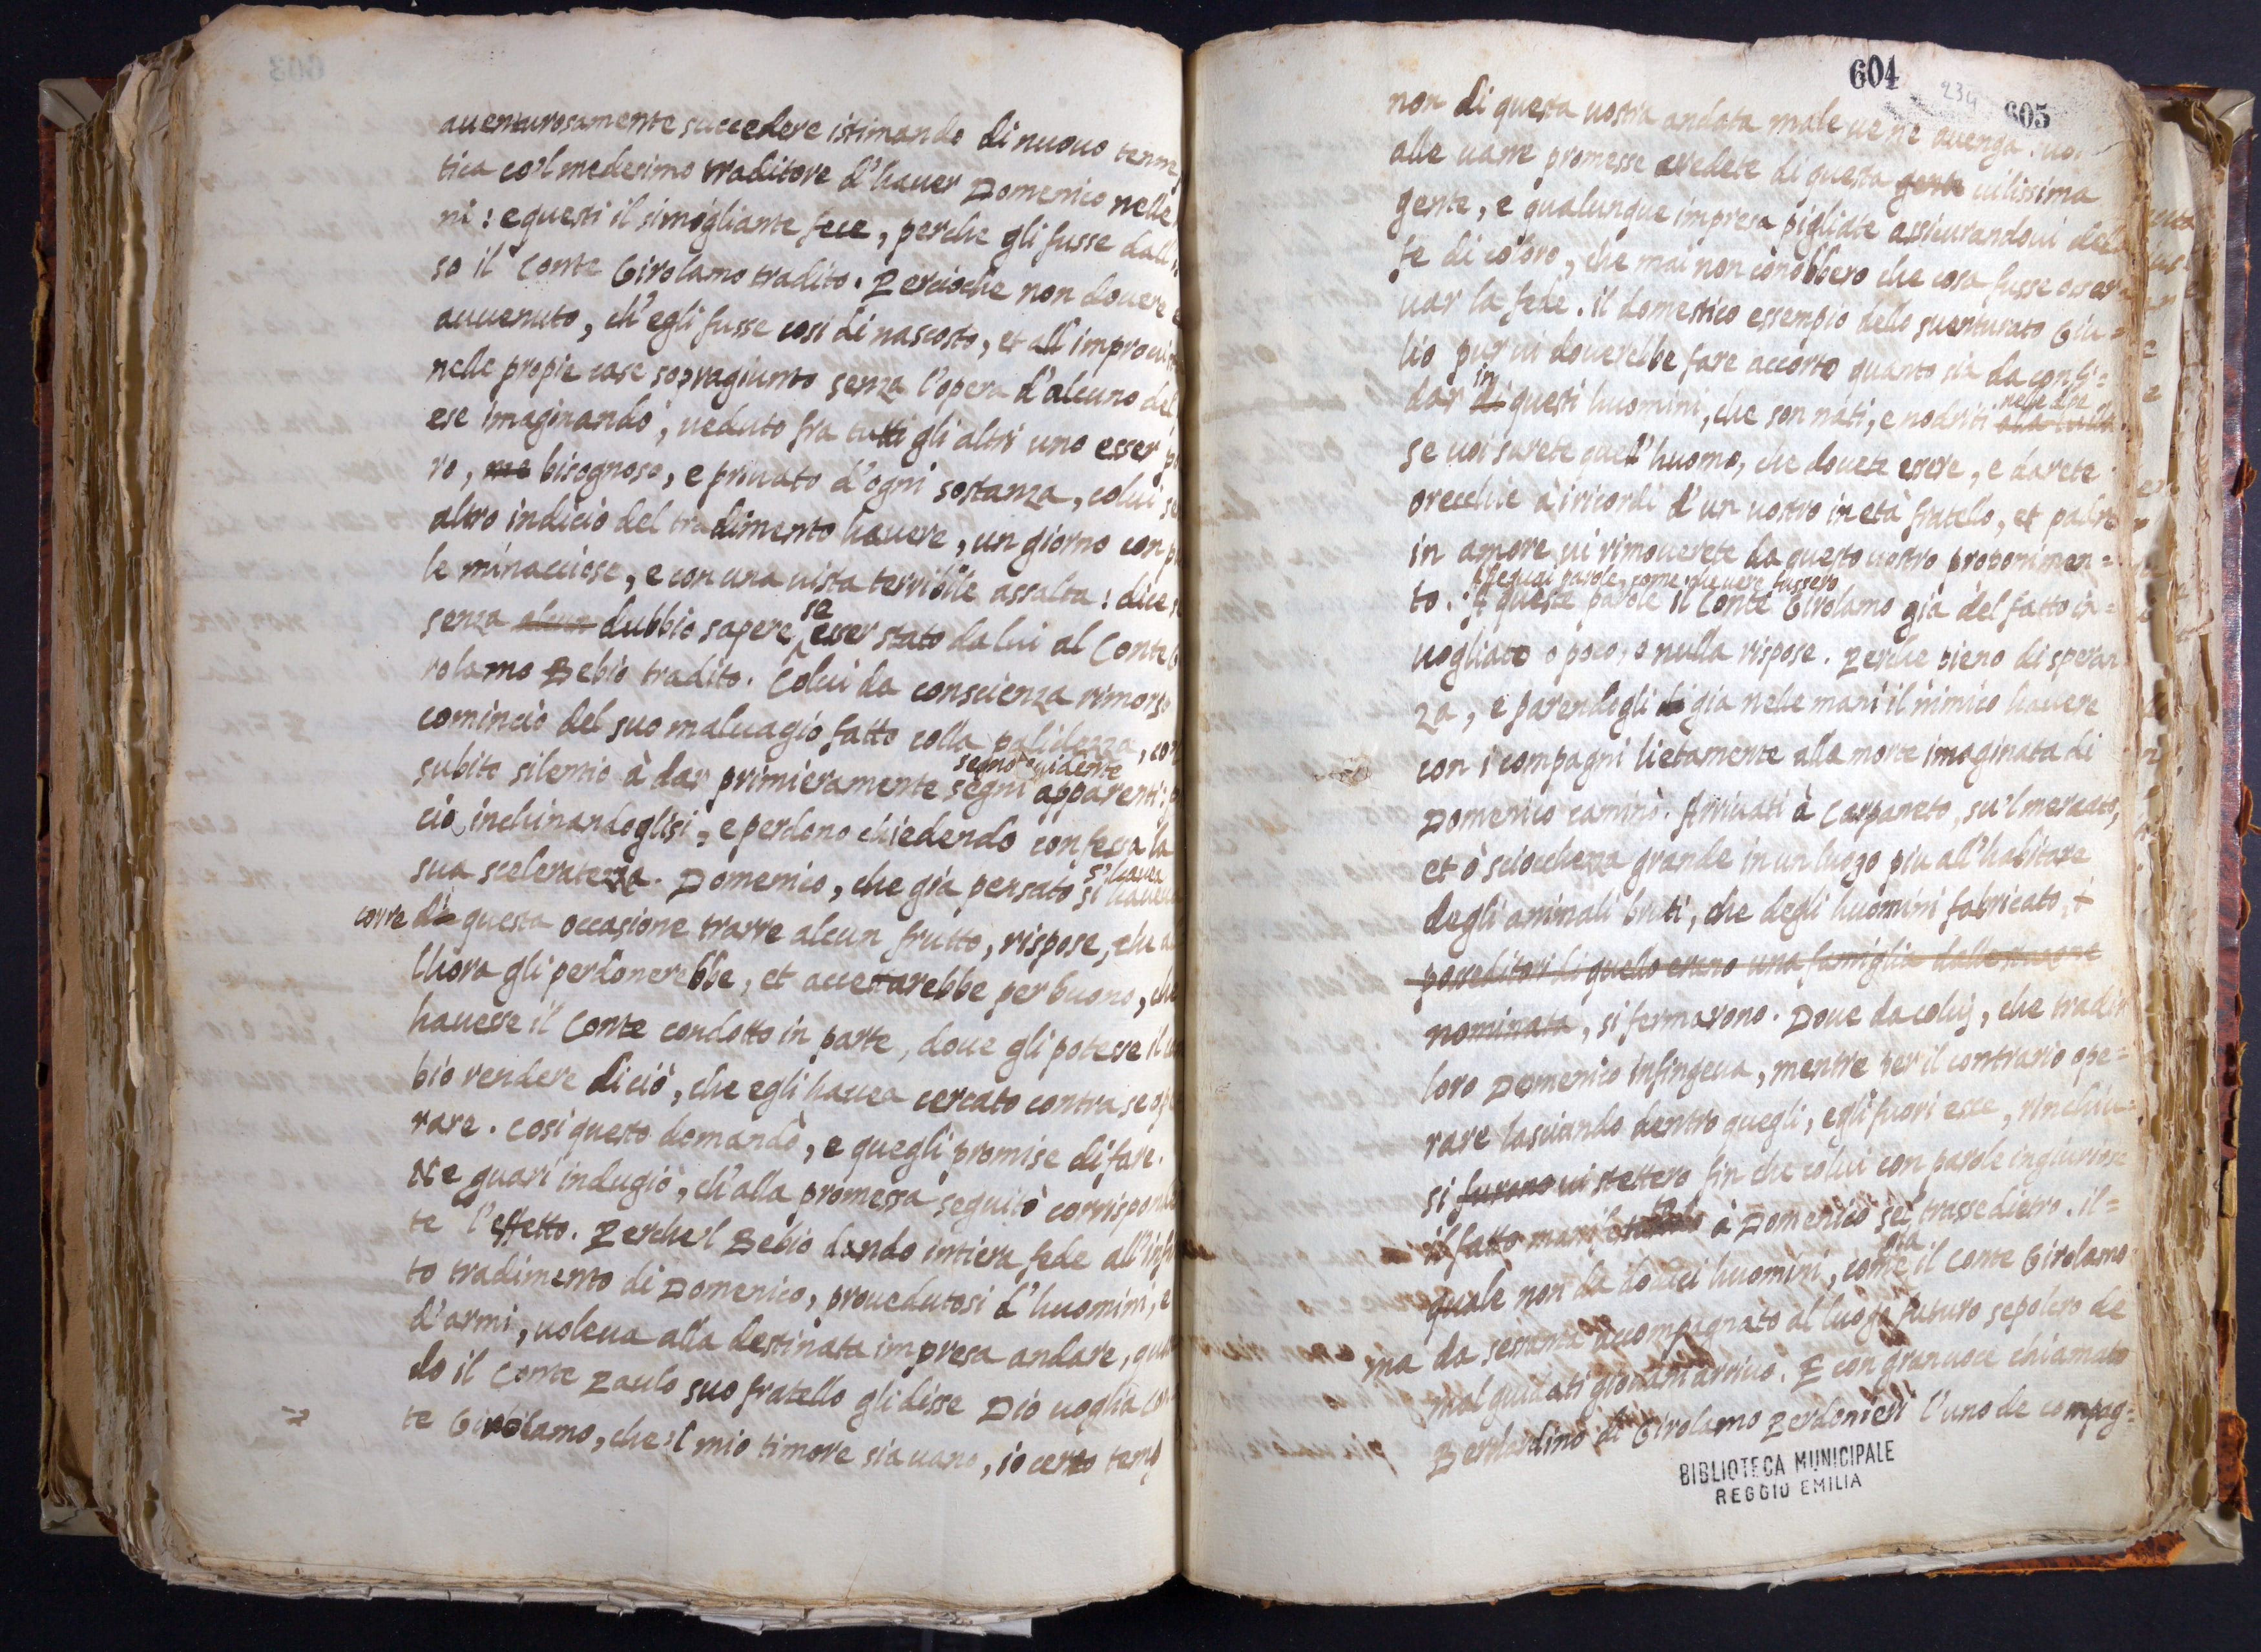 auenturosamente succedere istimando di nuouo tenne
tica co'l medesimo traditore d'hauer Domenico nelle
ni: e questi il simigliante fece, perche gli fusse dall
so il Conte Girolamo tradito. Percioche non douere
auuenuto, ch'egli fusse cosi di nascosto, et all'improui
nelle propie case sopragiunto senza l'opera d'alcuno del
ese imaginando, ueduto fra tutti gli altri uno esser
ro, me bisognoso, e priuato d'ogni sostanza, colui
altro indicio del tradimento hauere, un giorno con
le minacciose, e con una uista terribile assalta: dice
se
senza alcun dubbio sapere esser stato da lui al Conte
rolamo Bebio tradito. Colui da conscienza rimorso
cominciò del suo maluagio fatto colla palidezza, con
segno euidente
subito silentio à dar primieramente segni apparenti;
ciò, inchinandoglisi, e perdono chiedendo confessa la
s'hauea
sua sceleratezza. Domenico, che già pensato si hauea
corre di questa occasione trarre alcun frutto, rispose, che
lhora gli perdonerebbe, et accettarebbe per buono, che
hauesse il Conte condotto in parte, doue gli potesse il
bio rendere di ciò, che egli hauea cercato contra se op
rare. Cosi questo domandò, e quegli promise di fare.
Ne guari indugiò, ch'alla promessa seguitò corrisponde
te l'effetto. Perche'l Bebio dando intiera fede all'infi
to tradimento di Domenico, prouedutosi d'huomini, e
d'armi, uoleua alla destinata impresa andare, quan
do il Conte Paulo suo fratello gli disse Dio uoglia Con
te Girolamo, che'l mio timore sia uano, io certo temo
604
234
605
non di questa uostra andata male ue ne auenga. uoi
alle uane promesse credete di questa gente uilissima
gente, e qualunque impresa pigliate assicurandoui del
fe di coloro, che mai non conobbero che cosa fusse osser
uar la fede. il domestico essempio dello suenturato Giu=
lio pur ui douerebbe fare accorto quanto sia da confi=
in nelle alpe
dar di questi huomini, che son nati, e nodriti
se uoi sarete quell'huomo, che douete essere, e darete
orecchie à i ricordi d'un uostro in età fratello, et padre
in amore ui rimouerete da questo uostro proponimen=
parole, come che uere fussero
to. A queste parole il Conte Girolamo già del fatto in=
uogliato o poco, o nulla rispose. Perche pieno di speran
za, e parendogli di già nelle mani il nimico hauere
con i compagni lietamente alla morte imaginata di
Domenico caminò. Arriuati à Carpaneto, su'l mercato,
et ò sciocchezza grande in un luogo piu all'habitare
degli animali bruti, che degli huomini fabricato, i
posseditori di quello erano una famiglia delle
nominata, si fermarono. Doue da colui, che tradir
loro Domenico infingeua, mentre per il contrario ope=
rare lasciando dentro quegli, egli fuori esce, rinchiu=
si furono ui stettero fin che colui con parole ingiuriose
il fatto à Domenico sel trasse dietro. il=
già
quale non da dodici huomini, come il Conte Girolamo
ma da settanta accompagnato al luogo futuro sepolcro de
mal guidati giouani arriuo. E con gran uoce chiamato
Bernardino di Girolamo Perdonieri l'uno de compag=
BIBLIOTECA MUNICIPALE
REGGIO EMILIA